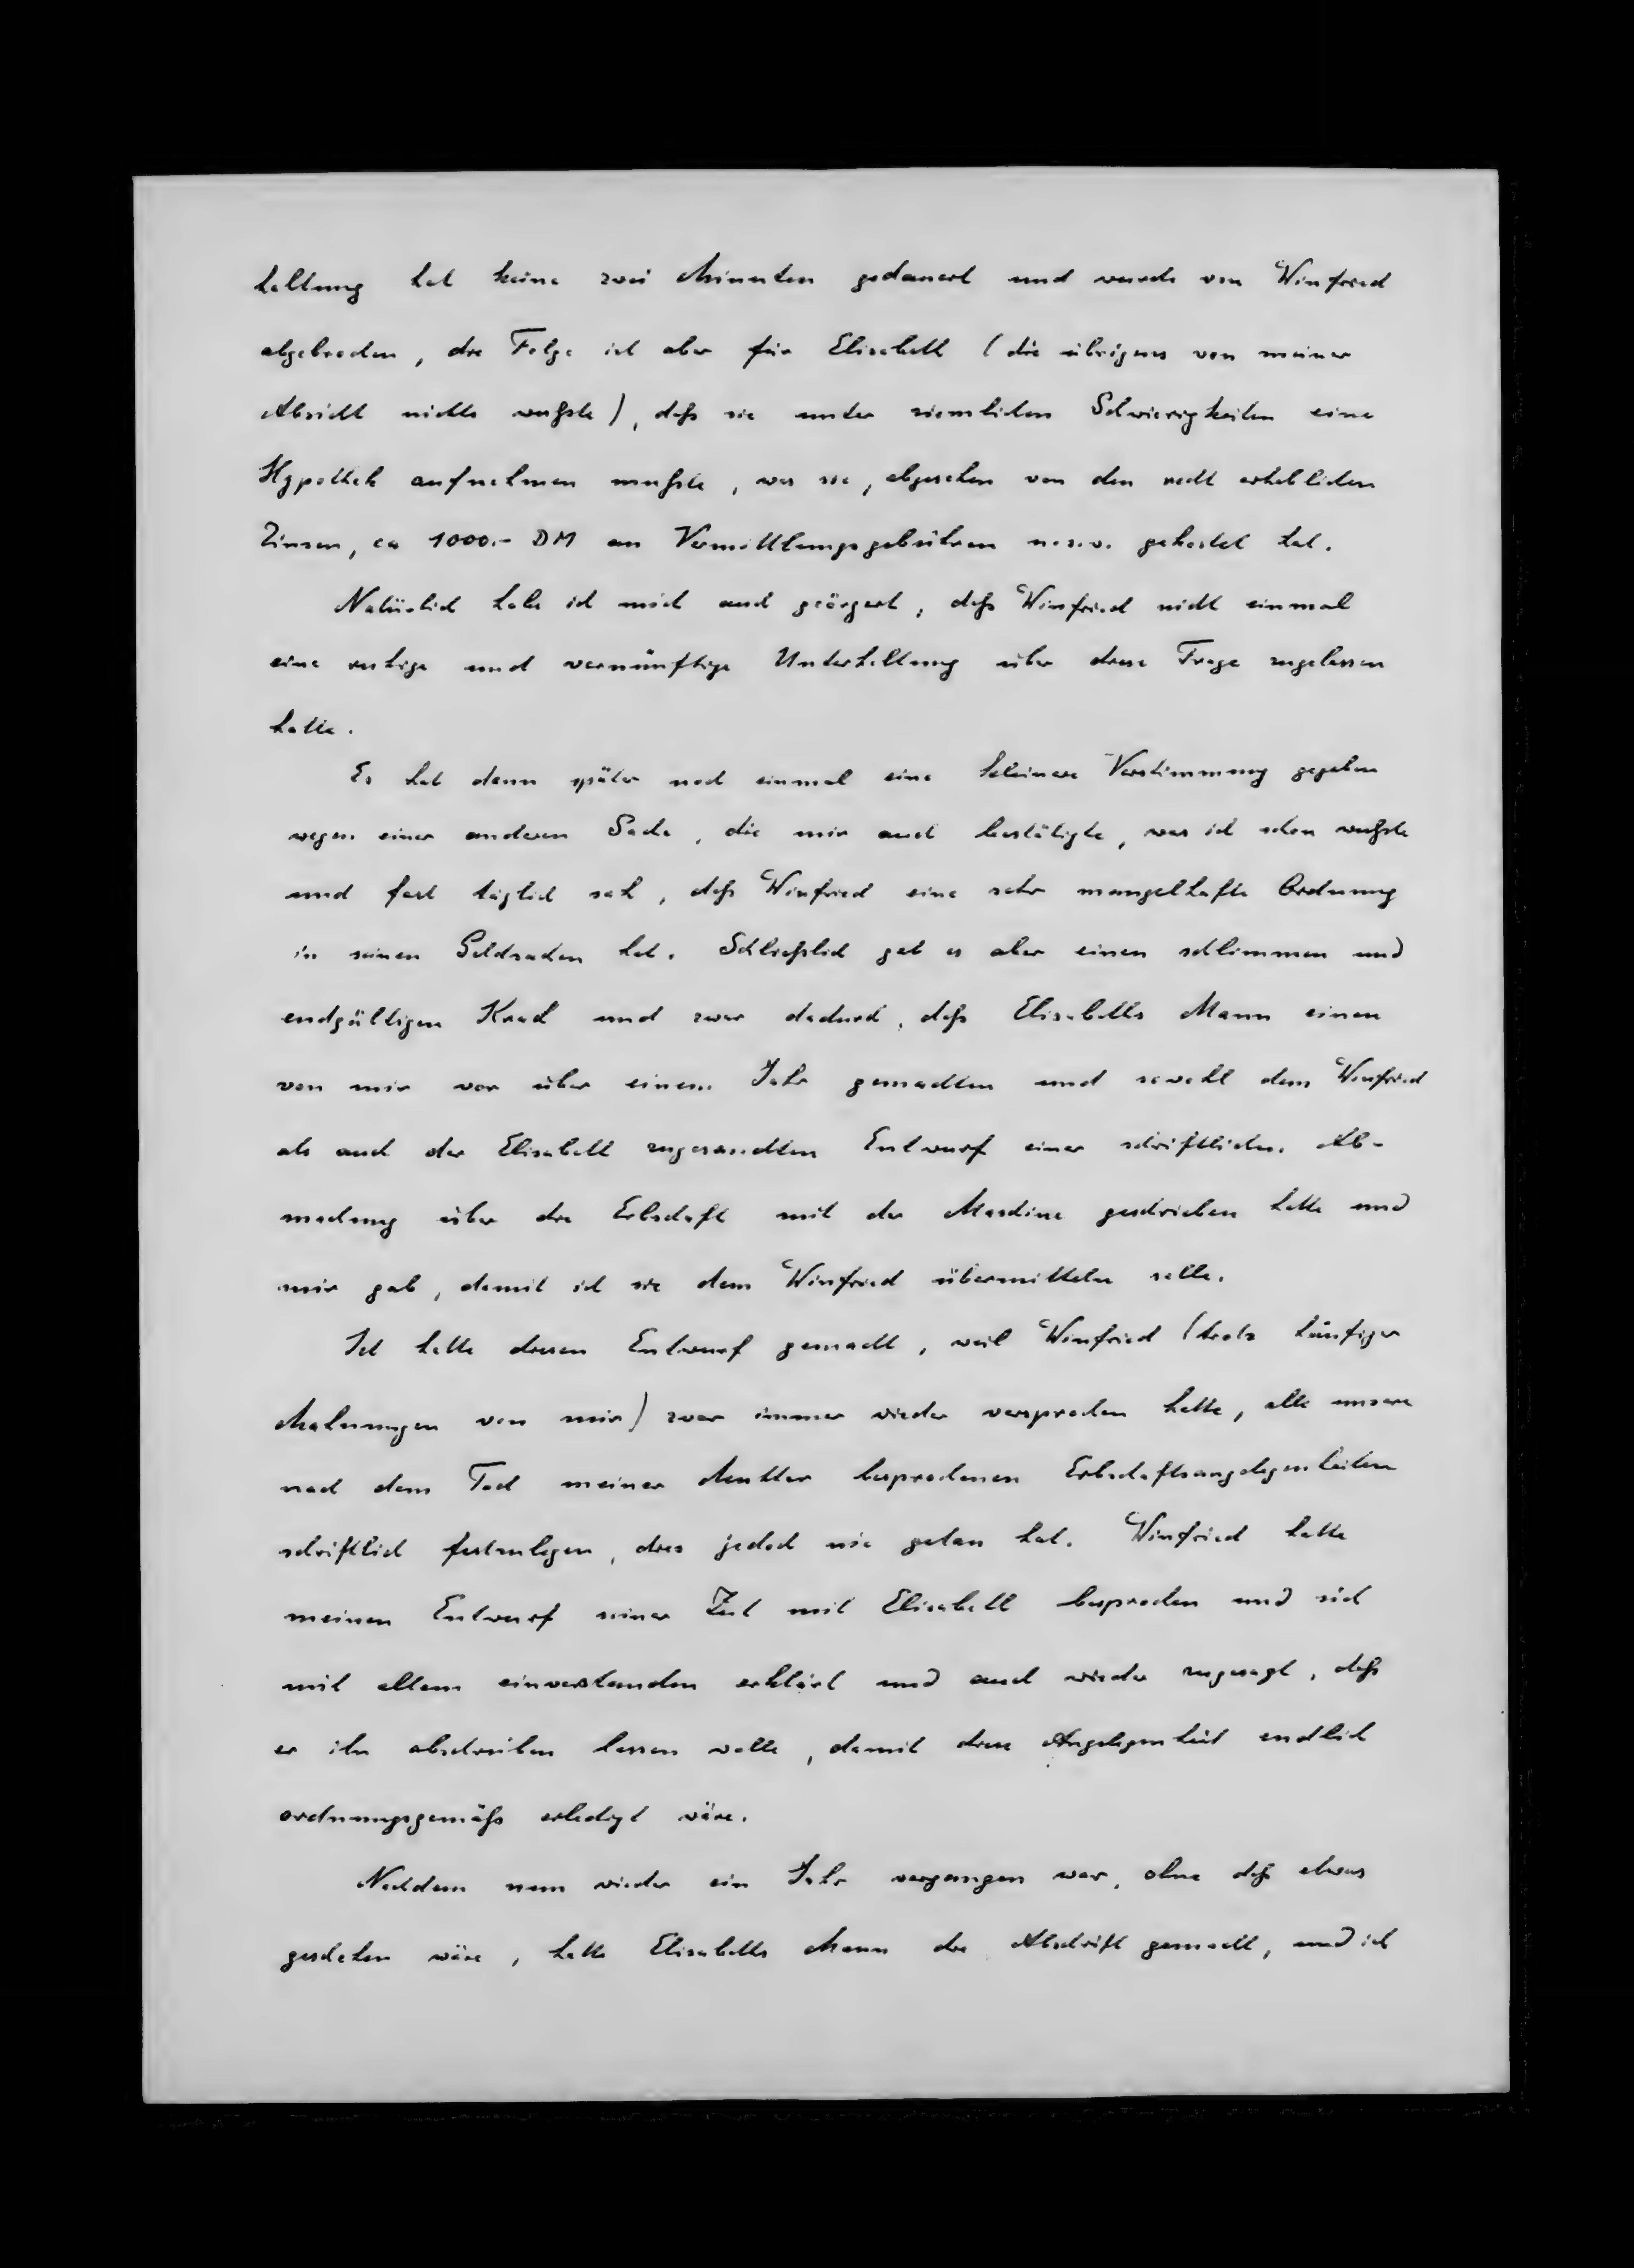 haltung hat keine zwei Minuten gedauert und wurde von Winfried
abgebrochen, die Folge ist aber für Elisabeth (die übrigens von meiner
Absicht nichts wußste), daß sie unter ziemlichen Schwierigkeiten eine
Hypothek aufnehmen mußste, was sie, abgesehen von den recht erheblichen
Zinsen, ca 1000.- DM an Vermittlungsgebühren u.s.w. gekostet hat.
Natürlich habe ich mich auch geärgert, daß Winfried nicht einmal
eine ruhige und vernünftige Unterhaltung über diese Frage zugelassen
hatte.
Es hat dann später noch einmal eine kleinere Verstimmung gegeben
wegen einer anderen Sache, die mir auch bestätigte, was ich schon wußste
und fast täglich sah, daß Winfried eine sehr mangelhafte Ordnung
in seinen Geldsachen hat. Schließlich gab es aber einen schlimmen und
endgültigen Krach und zwar dadurch, daß Elisabeths Mann einen
von mir vor über einem Jahr gemachten und sowohl dem Winfried
als auch der Elisabeth zugesandten Entwurf einer schriftlichen Ab-
machung über die Erbschaft mit der Maschine geschrieben hatte und
mir gab, damit ich sie dem Winfried übermitteln solle.
Ich hatte diesen Entwurf gemacht, weil Winfried (trotz häufiger
Mahnungen von mir) zwar immer wieder versprochen hatte, alle unsere
nach dem Tod meiner Mutter besprochenen Erbschaftsangelegenheiten
schriftlich festzulegen, dies jedoch nie getan hat. Winfried hatte
meinen Entwurf seiner Zeit mit Elisabeth besprochen und sich
mit allem einverstanden erklärt und auch wieder zugesagt, daß
er ihn abschreiben lassen wolle, damit diese Angelegenheit endlich
ordnungsgemäß erledigt wäre.
Nachdem nun wieder ein Jahr vergangen war, ohne daß etwas
geschehen wäre, hatte Elisabeths Mann die Abschrift gemacht, und ich